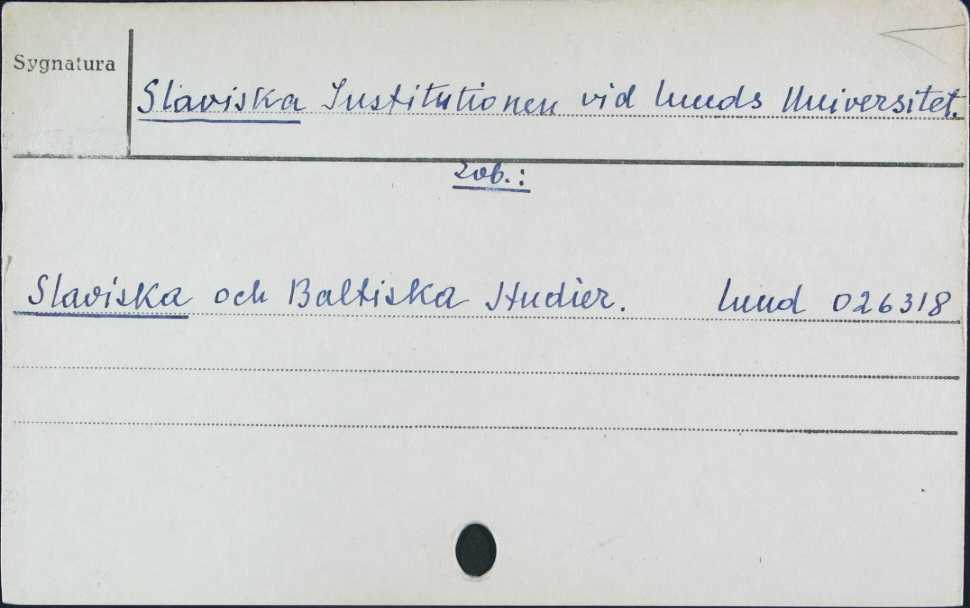 Sygnatura
Slaviska Institutionen vid Lunds Universitet.
zob.:
Slaviska och Baltiska Studier. Lund 026318